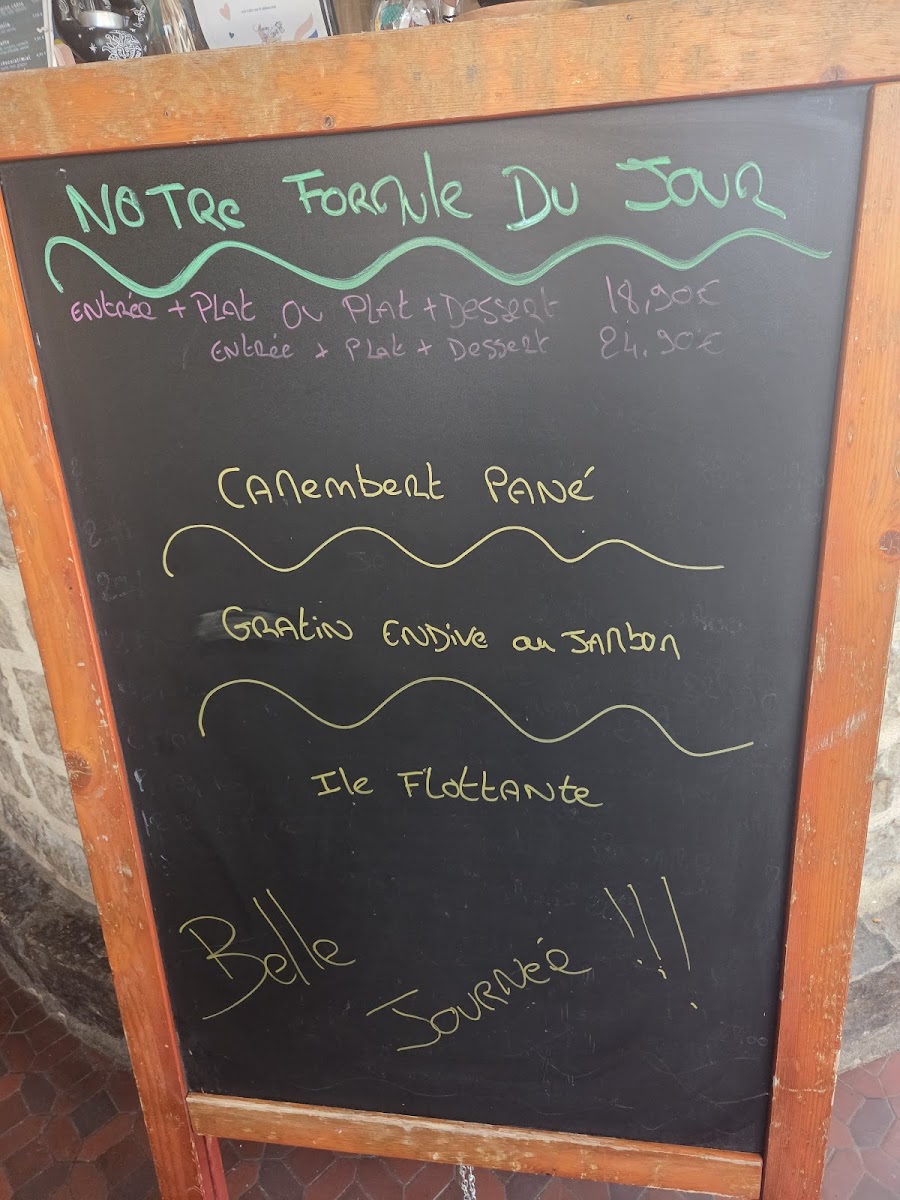 NOTRe FORMULe DU JOUR
ENtRée + PLAt OU PLAt + DesseRt 18,90€
ENtRée + PLAt + DesseRt 24.90€
CAMembeRt PANé
GRAtiN ENDive au JAMboN
Ile FLottANte
Belle
JOURNée !!!